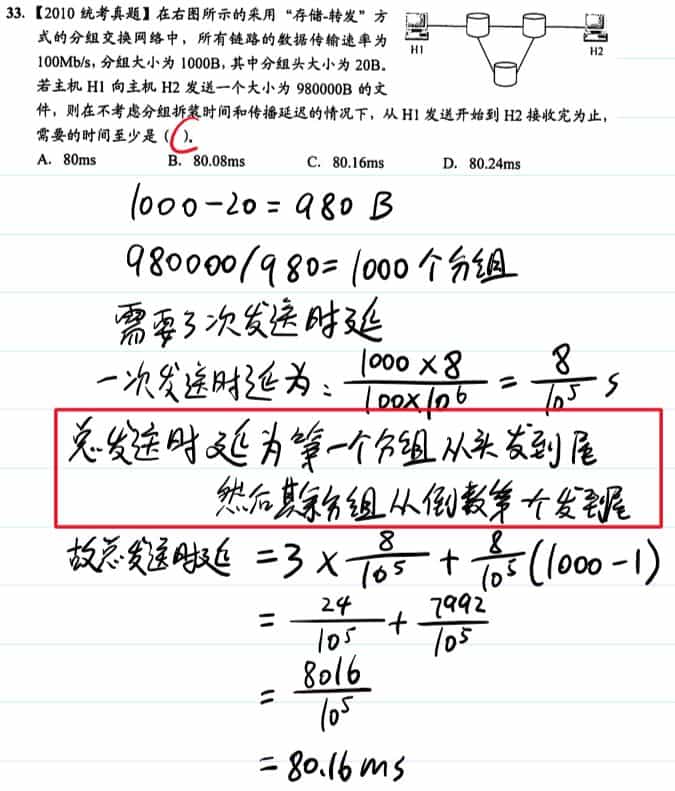 33. 【2010 统考真题】在右图所示的采用“存储-转发”方
式的分组交换网络中，所有链路的数据传输速率为
100Mb/s，分组大小为 1000B，其中分组头大小为 20B。
若主机 H1 向主机 H2 发送一个大小为 980000B 的文
件，则在不考虑分组拆装时间和传播延迟的情况下，从 H1 发送开始到 H2 接收完为止，
需要的时间至少是（ ）。
H1 H2
A. 80ms B. 80.08ms C. 80.16ms D. 80.24ms
1000-20=980 B
980000/980=1000个分组
需要3次发送时延
一次发送时延为：1000×8/100×10^6 = 8/10^5 s
总发送时延为第一个分组从头发到尾
然后其余分组从倒数第一个发到尾
故总发送时延 =3×8/10^5+8/10^5(1000-1)
=24/10^5+7992/10^5
=8016/10^5
=80.16ms